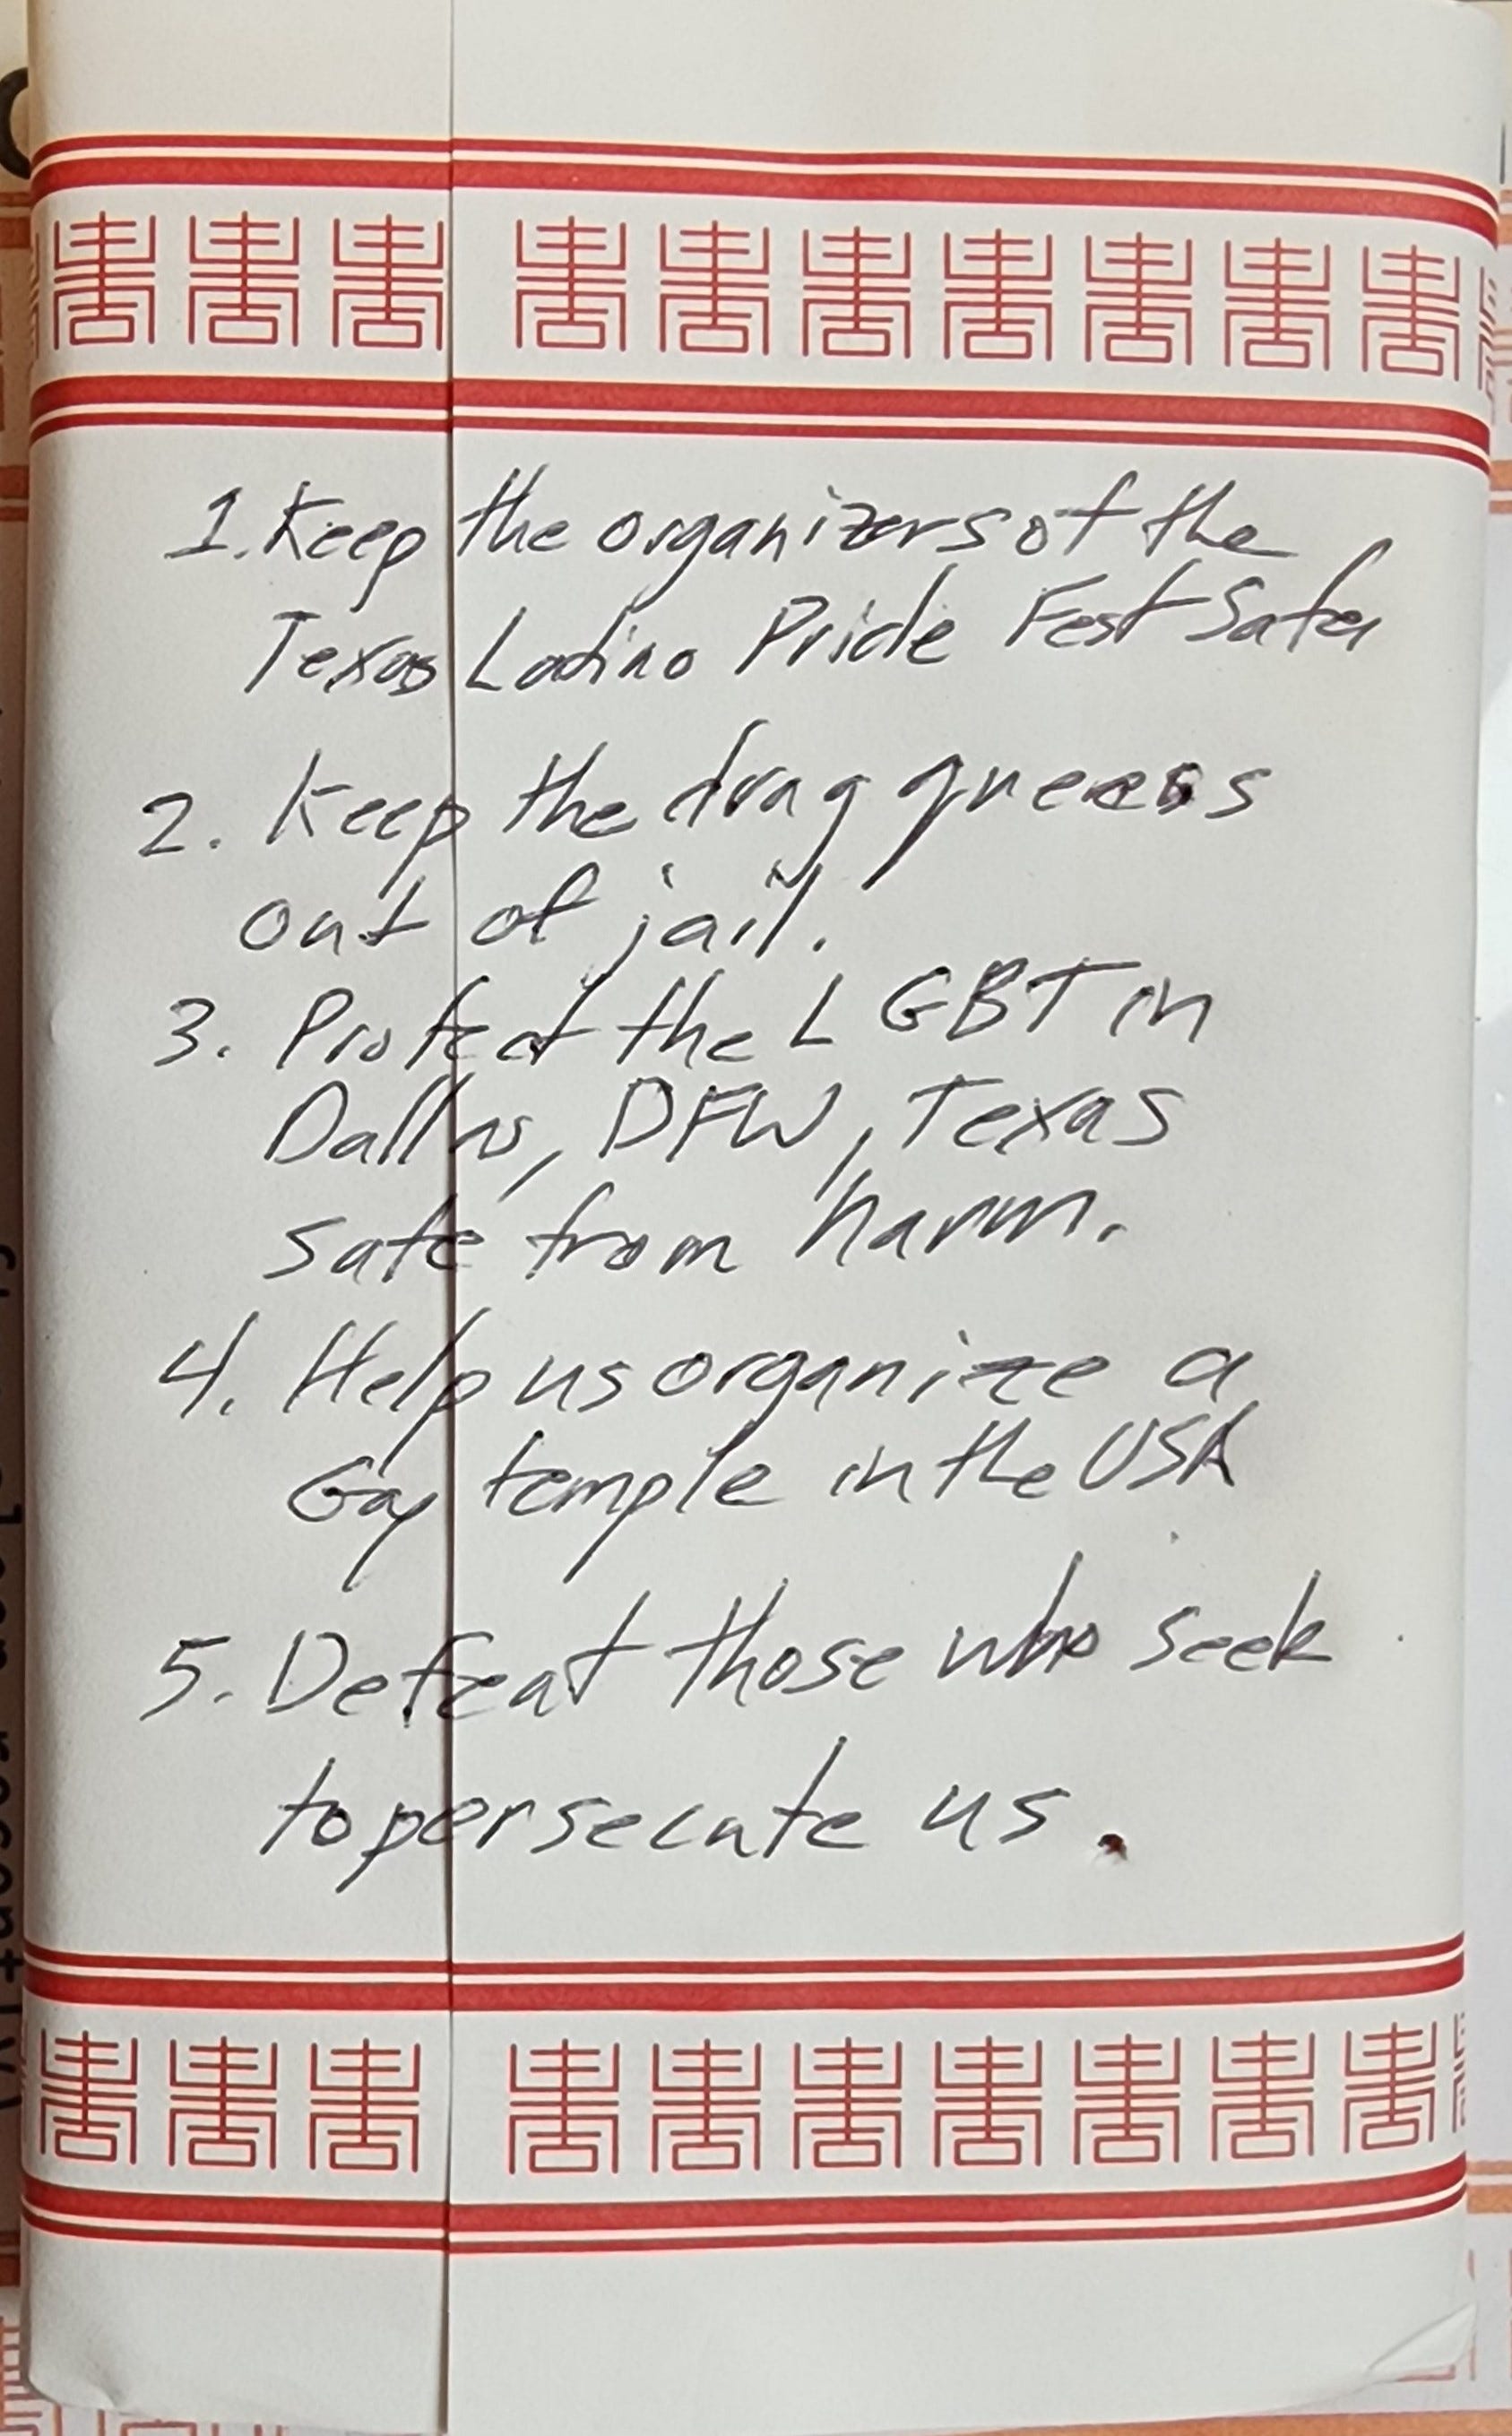 1. Keep the organizers of the
Texas Latino Pride Fest Safe.
2. Keep the drag queens
out of jail.
3. Protect the LGBT in
Dallas, DFW, Texas
safe from harm.
4. Help us organize a
Gay temple in the USA
5. Defeat those who seek
to persecute us.